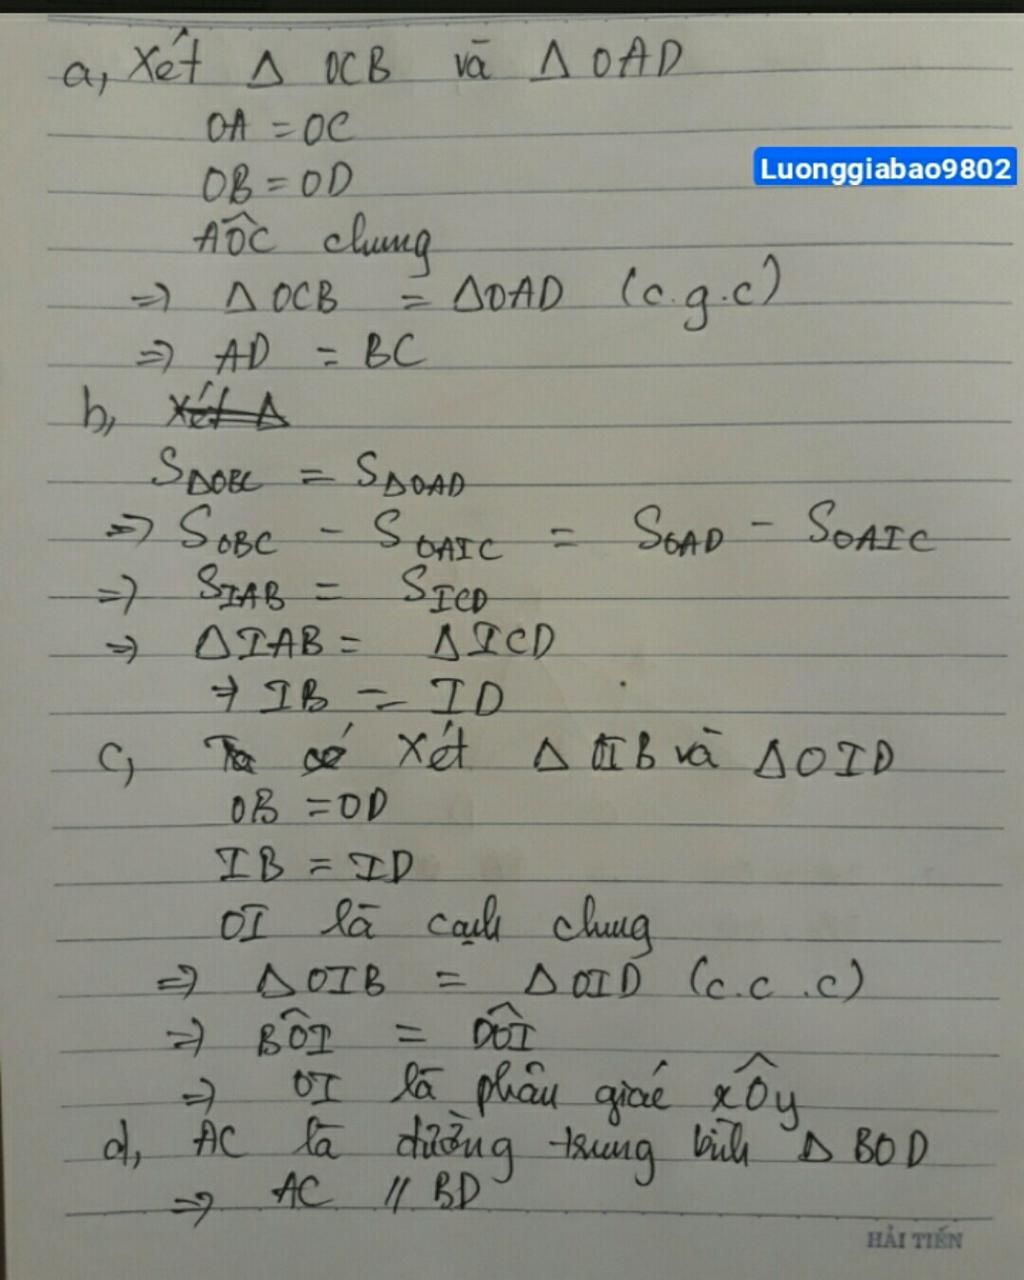 a, Xét Δ OCB và Δ OAD
OA = OC
Luonggiabao9802
OB = OD
AÔC chung
=> Δ OCB = ΔOAD (c.g.c)
=> AD = BC
b, Xét Δ
SΔOBC = SΔOAD
=> SOBC - SOAIC = SOAD - SOAIC
=> SIAB = SICD
=> ΔIAB = ΔICD
=> IB = ID
c, Ta có Xét Δ OIB và ΔOID
OB = OD
IB = ID
OI là cạnh chung
=> ΔOIB = ΔOID (c.c.c)
=> BÔI = DÔI
=> OI là phân giác xÔy
d, AC là đường trung bình Δ BOD
=> AC // BD
HẢI TIẾN